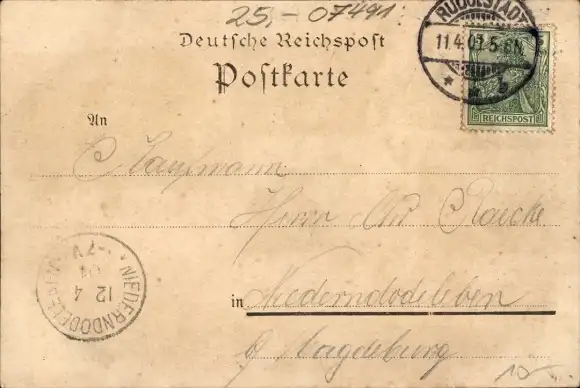 25,- 07491
Deutsche Reichspost
Postkarte
RUDOLSTADT
11.4.01.5-6N.
* b
REICHSPOST
An
Kaufmann
Herrn Raecke
in Niederndodeleben
b/ Magdeburg
NIEDERNDODELEBEN
12 4
01
7-V
10,-